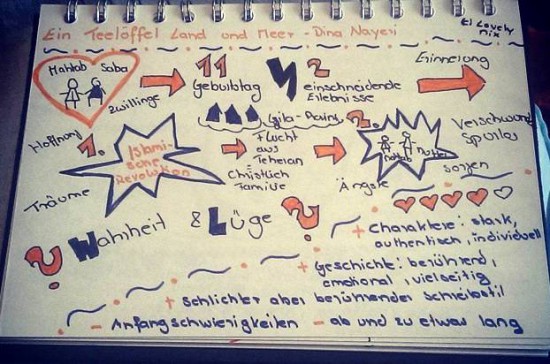 Ein Teelöffel Land und Meer - Dina Nayeri
El Lovely mix
Mahtab Saba
Zwillinge
11
Geburtstag
2
einschneidende
Erlebnisse
Erinnerung
Hoffnung
1.
Islami-
sche
Revolution
Träume
Flucht
aus
Teheran
Christlich
Familie
2.
Mutter
Ängste
Verschwand
Spurlos
Sorgen
? Wahrheit & Lüge ?
+ Charaktere: stark,
authentisch, individuell
+ Geschichte: berührend,
emotional, vielseitig
+ Schlichter aber berührender Schreibstil
- Anfangschwierigkeiten - ab und zu etwas lang